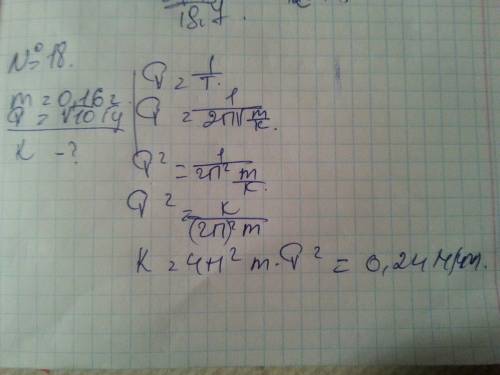 18.7
№ 18.
m = 0,16 г.
ν = 10 Гц
K - ?
ν = 1/T.
ν = 1/(2π√(m/K)).
ν² = 1/(2π² m/K).
ν² = K/((2π)² m)
K = 4π² m · ν² = 0,24 Н/m.